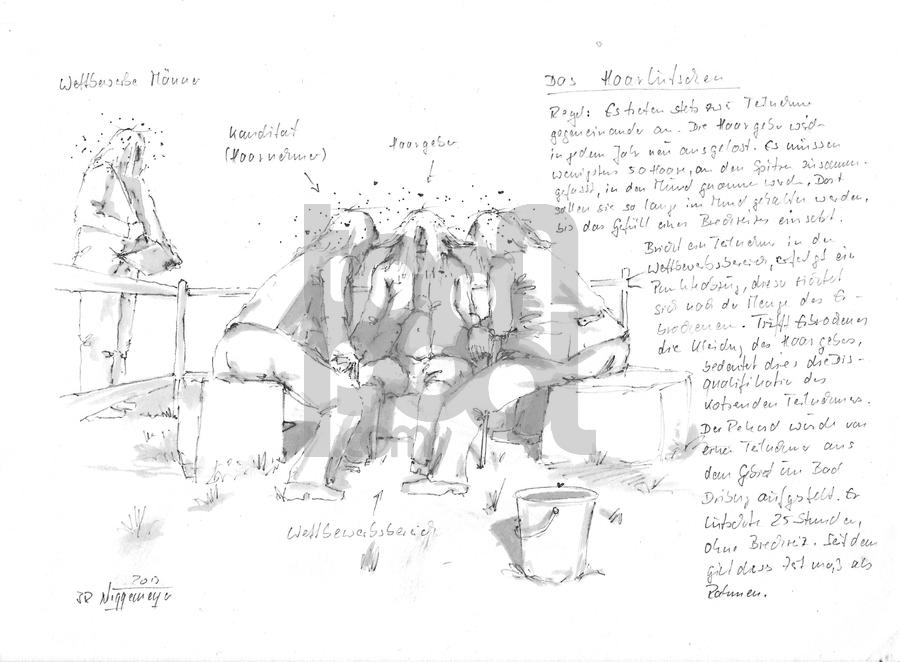 Wettbewerbe Männer
Kandidat
(Haarnehmer)
Haargeber
Das Haarlutschen
Regel: Es treten stets zwei Teilnehmer
gegeneinander an. Die Haargeber werden
in jedem Jahr neu ausgelost. Es müssen
wenigstens 50 Haare, an den Spitzen zusammen-
gefasst, in den Mund genommen werden. Dort
sollen sie so lange im Mund gehalten werden,
bis das Gefühl eines Brechreizes einsetzt.
Bricht ein Teilnehmer in den
Wettbewerbsbereich, erfolgt ein
Punktabzug, dieser richtet
sich nach der Menge des Er-
brochenen. Trifft Erbrochenes
die Kleidung des Haargebers,
bedeutet dies die Dis-
qualifikation des
kotzenden Teilnehmers.
Der Rekord wurde von
einem Teilnehmer aus
dem Gebiet um Bad
Driburg aufgestellt. Er
lutschte 25 Stunden,
ohne Brechreiz. Seitdem
gilt dieses Zeitmaß als
Rahmen.
Wettbewerbsbereich
2013
JR Niggemeyer
toonpool
.com